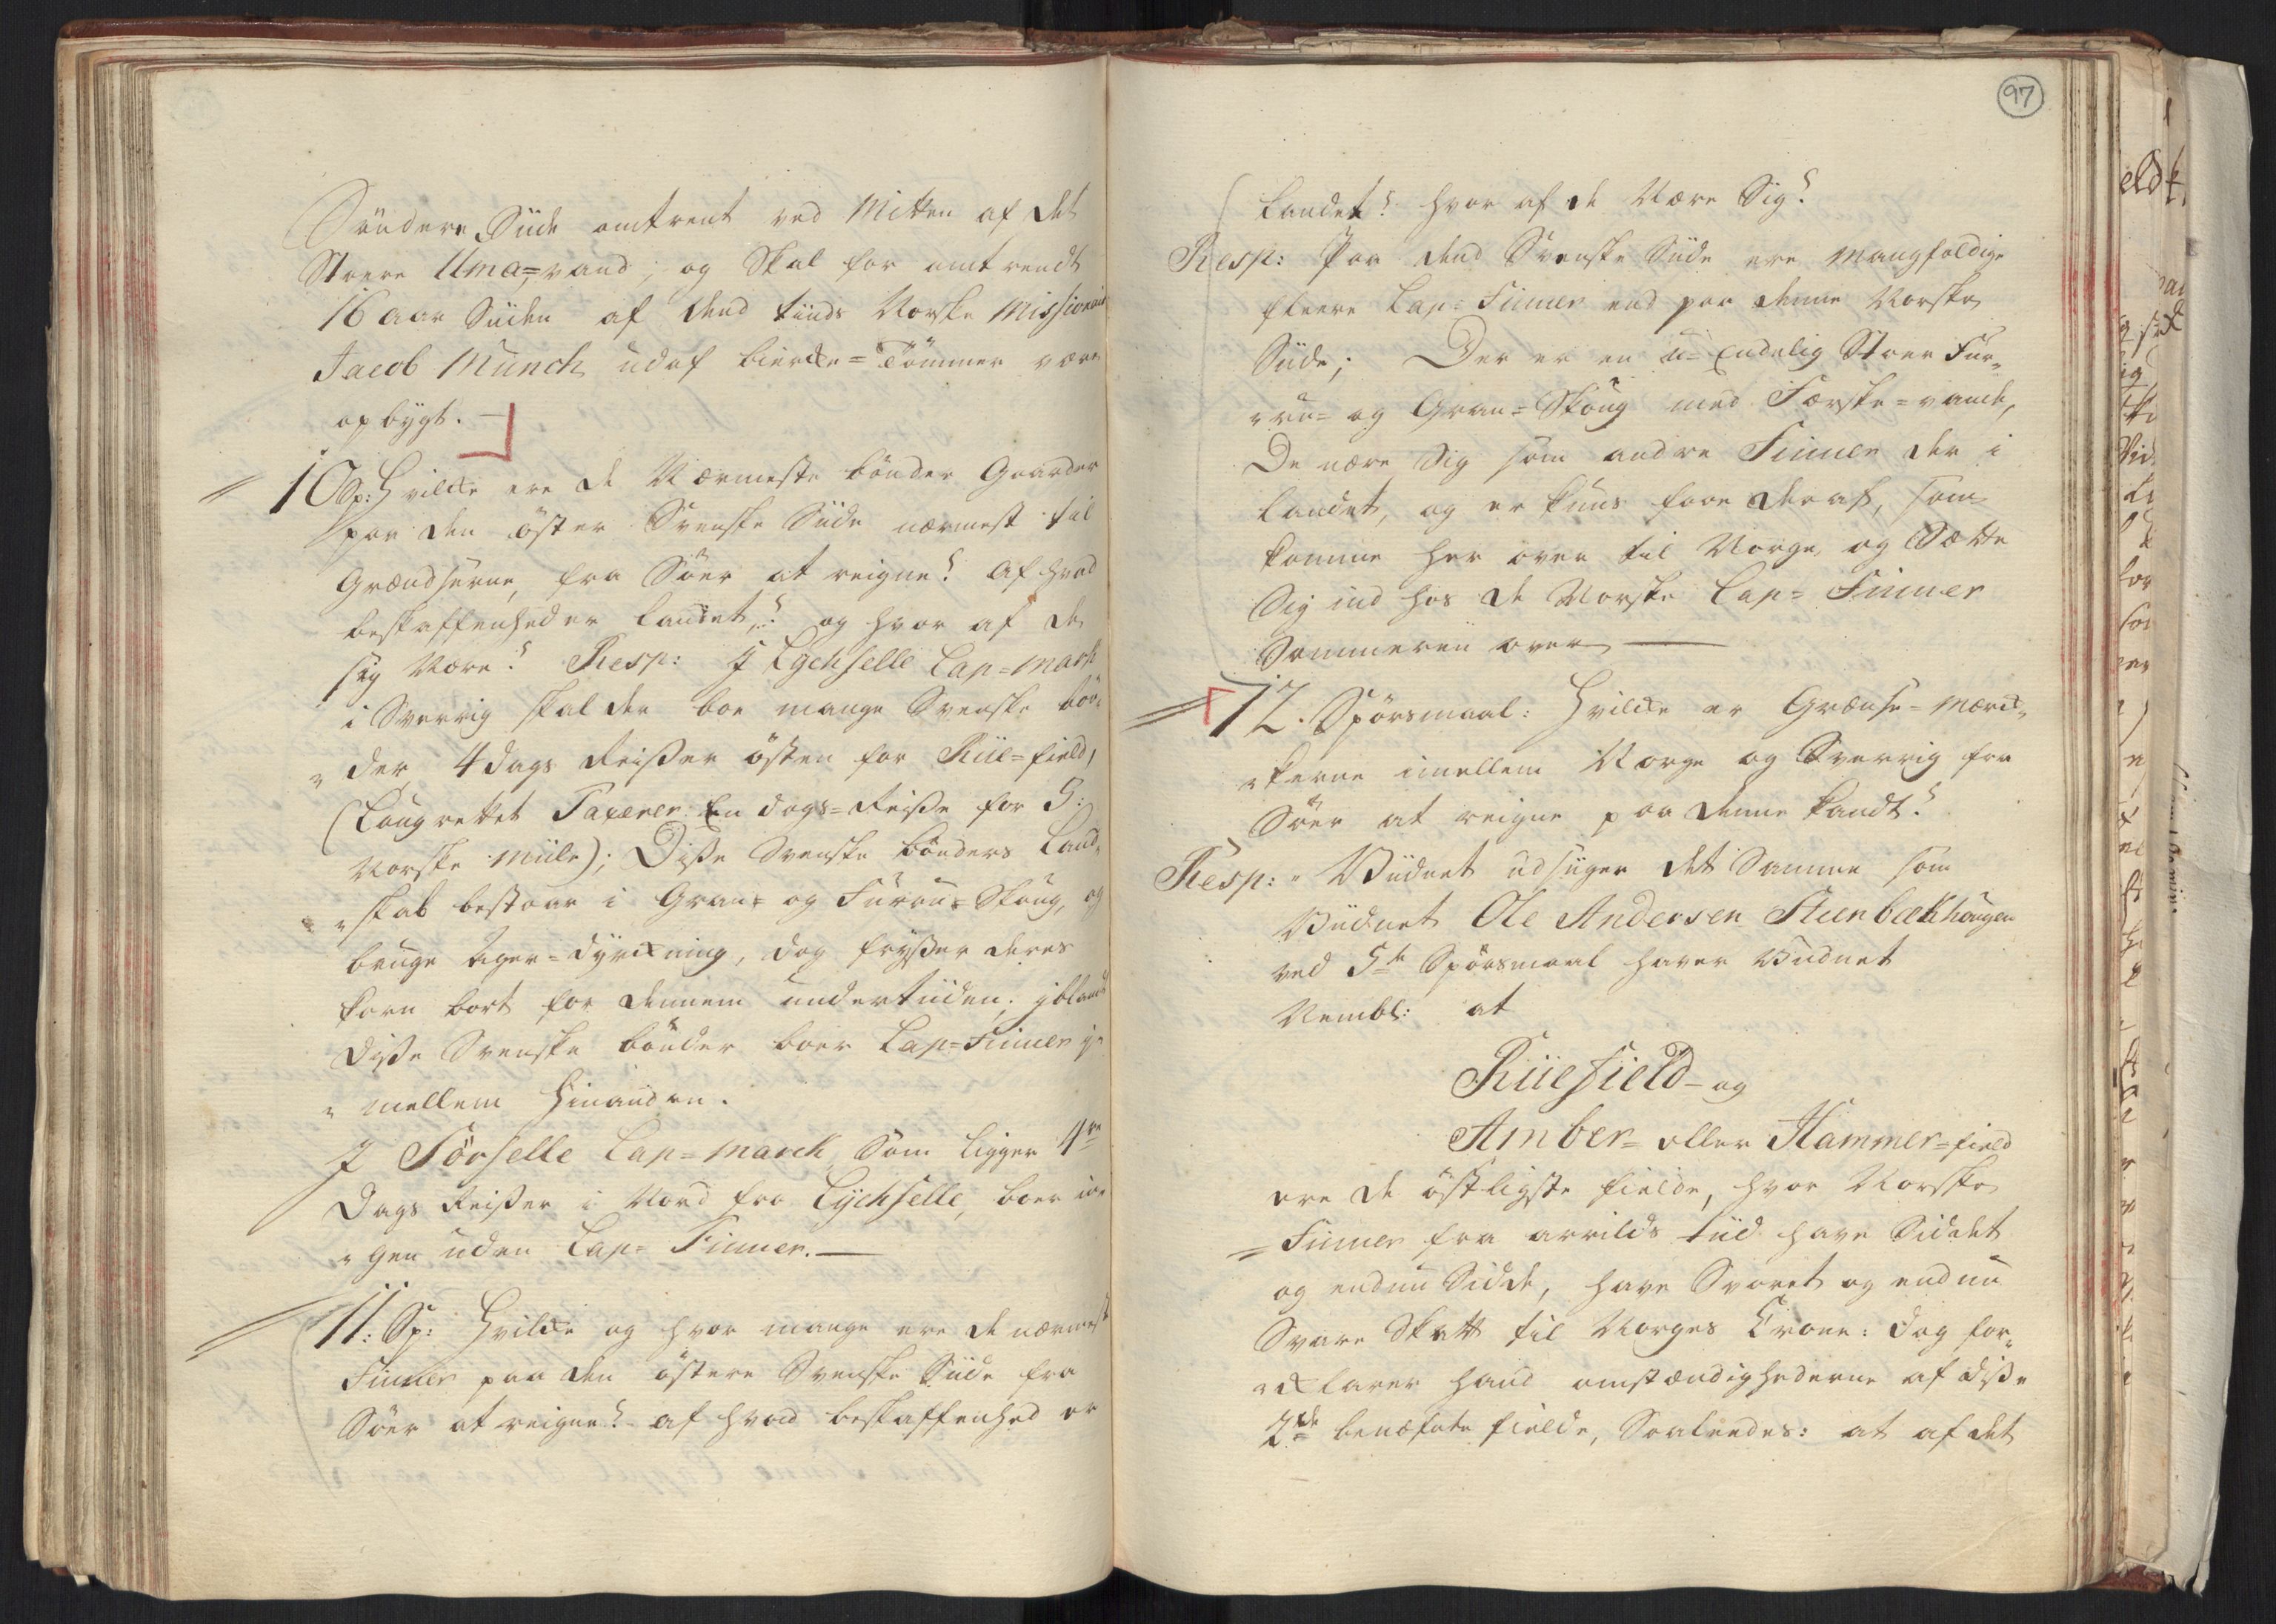 Söndere Siide omtrent ved Mitten af det
Store Uma=vand; og Skal for omtrendt
16 aar Siiden af dend tiids Norske Missionair
Jacob Munch udaf bierke=Tömmer være
opbÿgt. —
10 Sp: Hvilcke ere de Nærmeste bönder Gaarder
paa den öster Svenske Siide nærmest til
Grændserne, fra Söer at reigne? Af hvad
beskaffenhed er landet? og hvor af de
sig Nære? Resp: I Lychselle Lap=mark
i Sverrig skal der boe mange Svenske bön„
„der 4 dags Reiser östen for Riie=field,
(Laugrettet Taxerer En dags=Reise for 5:
Norske Miile); Disse Svenske bönders Land„
„skab bestaar i Gran= og Furru=Skoug, og
bruge Ager=dÿrckning, dog frÿsser deres
korn bort for dennem undertiiden; jbland
disse Svenske bönder boer Lap=Finner j„
„mellem Hinanden.
I Sörselle Lap=marck, Som ligger 4re
Dags Reiser i Nord fra Lÿchselle, boer in„
„gen uden Lap=Finner. —
11: Sp: Hvilcke og hvor mange ere de nærmeste
Finner paa den östere Svenske Siide fra
Söer at reigne? af hvad beskaffenhed er
97
landet? hvor af de Nære Sig?
Resp: Paa dend Svenske Siide ere mangfoldige
fleere Lap=Finner end paa denne Norske
Siide; Der er en u=Endelig Stoer Fur„
„ru= og Gran=Skoug med Færske=vande,
De nære Sig som andre Finner der i
landet, og er kuns faae deraf, som
komme her over til Norge, og Sætte
Sig ind hos de Norske Lap=Finner
Sommeren over —
12. Spörsmaal: Hvilcke er Grænse=Mærck„
„kerne imellem Norge og Sverrig fra
Söer at reigne paa denne kandt?
Resp: Viidnet udsiiger det Samme som
Viidnet Ole Andersen Steenbækhaugen
ved 5te Spörsmaal haver Viidnet
Nembl: at
Riiefield= og
Amber= eller Hammer=field
ere de östligste fielde, hvor Norske
Finner fra arrilds tiid have Siddet
og endnu Sidde, have Svaret og endnu
Svare Skatt til Norges Crone: dog for„
„klarer hand omstændighederne af disse
2de benæfnte fielde, Saaleedes: at af det